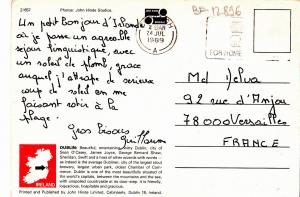 21657
Photos: John Hinde Studios.
BF-12896
24 JUL
1989
A
Un petit Bonjour d'Irlande
où je passe un agréable
séjour linguistique, avec
un soleil de plomb, grâce
auquel j'attrape de sérieux
coup de soleil en me
faisant rotir à la
plage.
Gros bisous
Guillaume
Md Delva
92 rue d'Anjou
78000 Versailles
FRANCE
IRELAND
DUBLIN: Beautiful, entertaining, witty Dublin, city of
Sean O'Casey, James Joyce, George Bernard Shaw,
Sheridan, Swift and a host of other wizards with words —
Dublin is one of the most beautifully situated of
the world's capitals, between the mountains and the sea,
with unspoiled countryside at its door-step. It is friendly,
loquacious, hospitable and gracious.
Printed and Published by John Hinde Limited, Cabinteely, Dublin 18, Ireland.